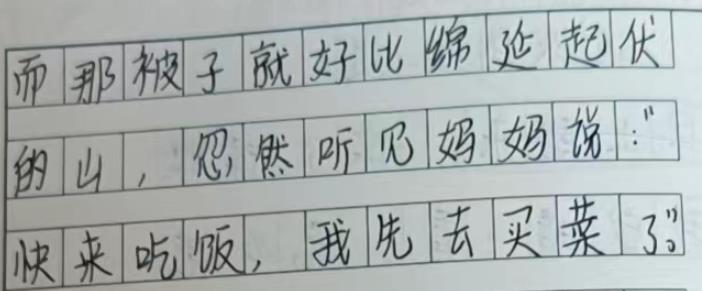 而那被子就好比绵延起伏
的山，忽然听见妈妈说："
快来吃饭，我先去买菜了"。